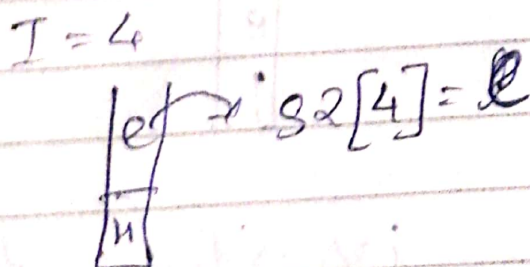 I = 4
e → S2[4] = e
n